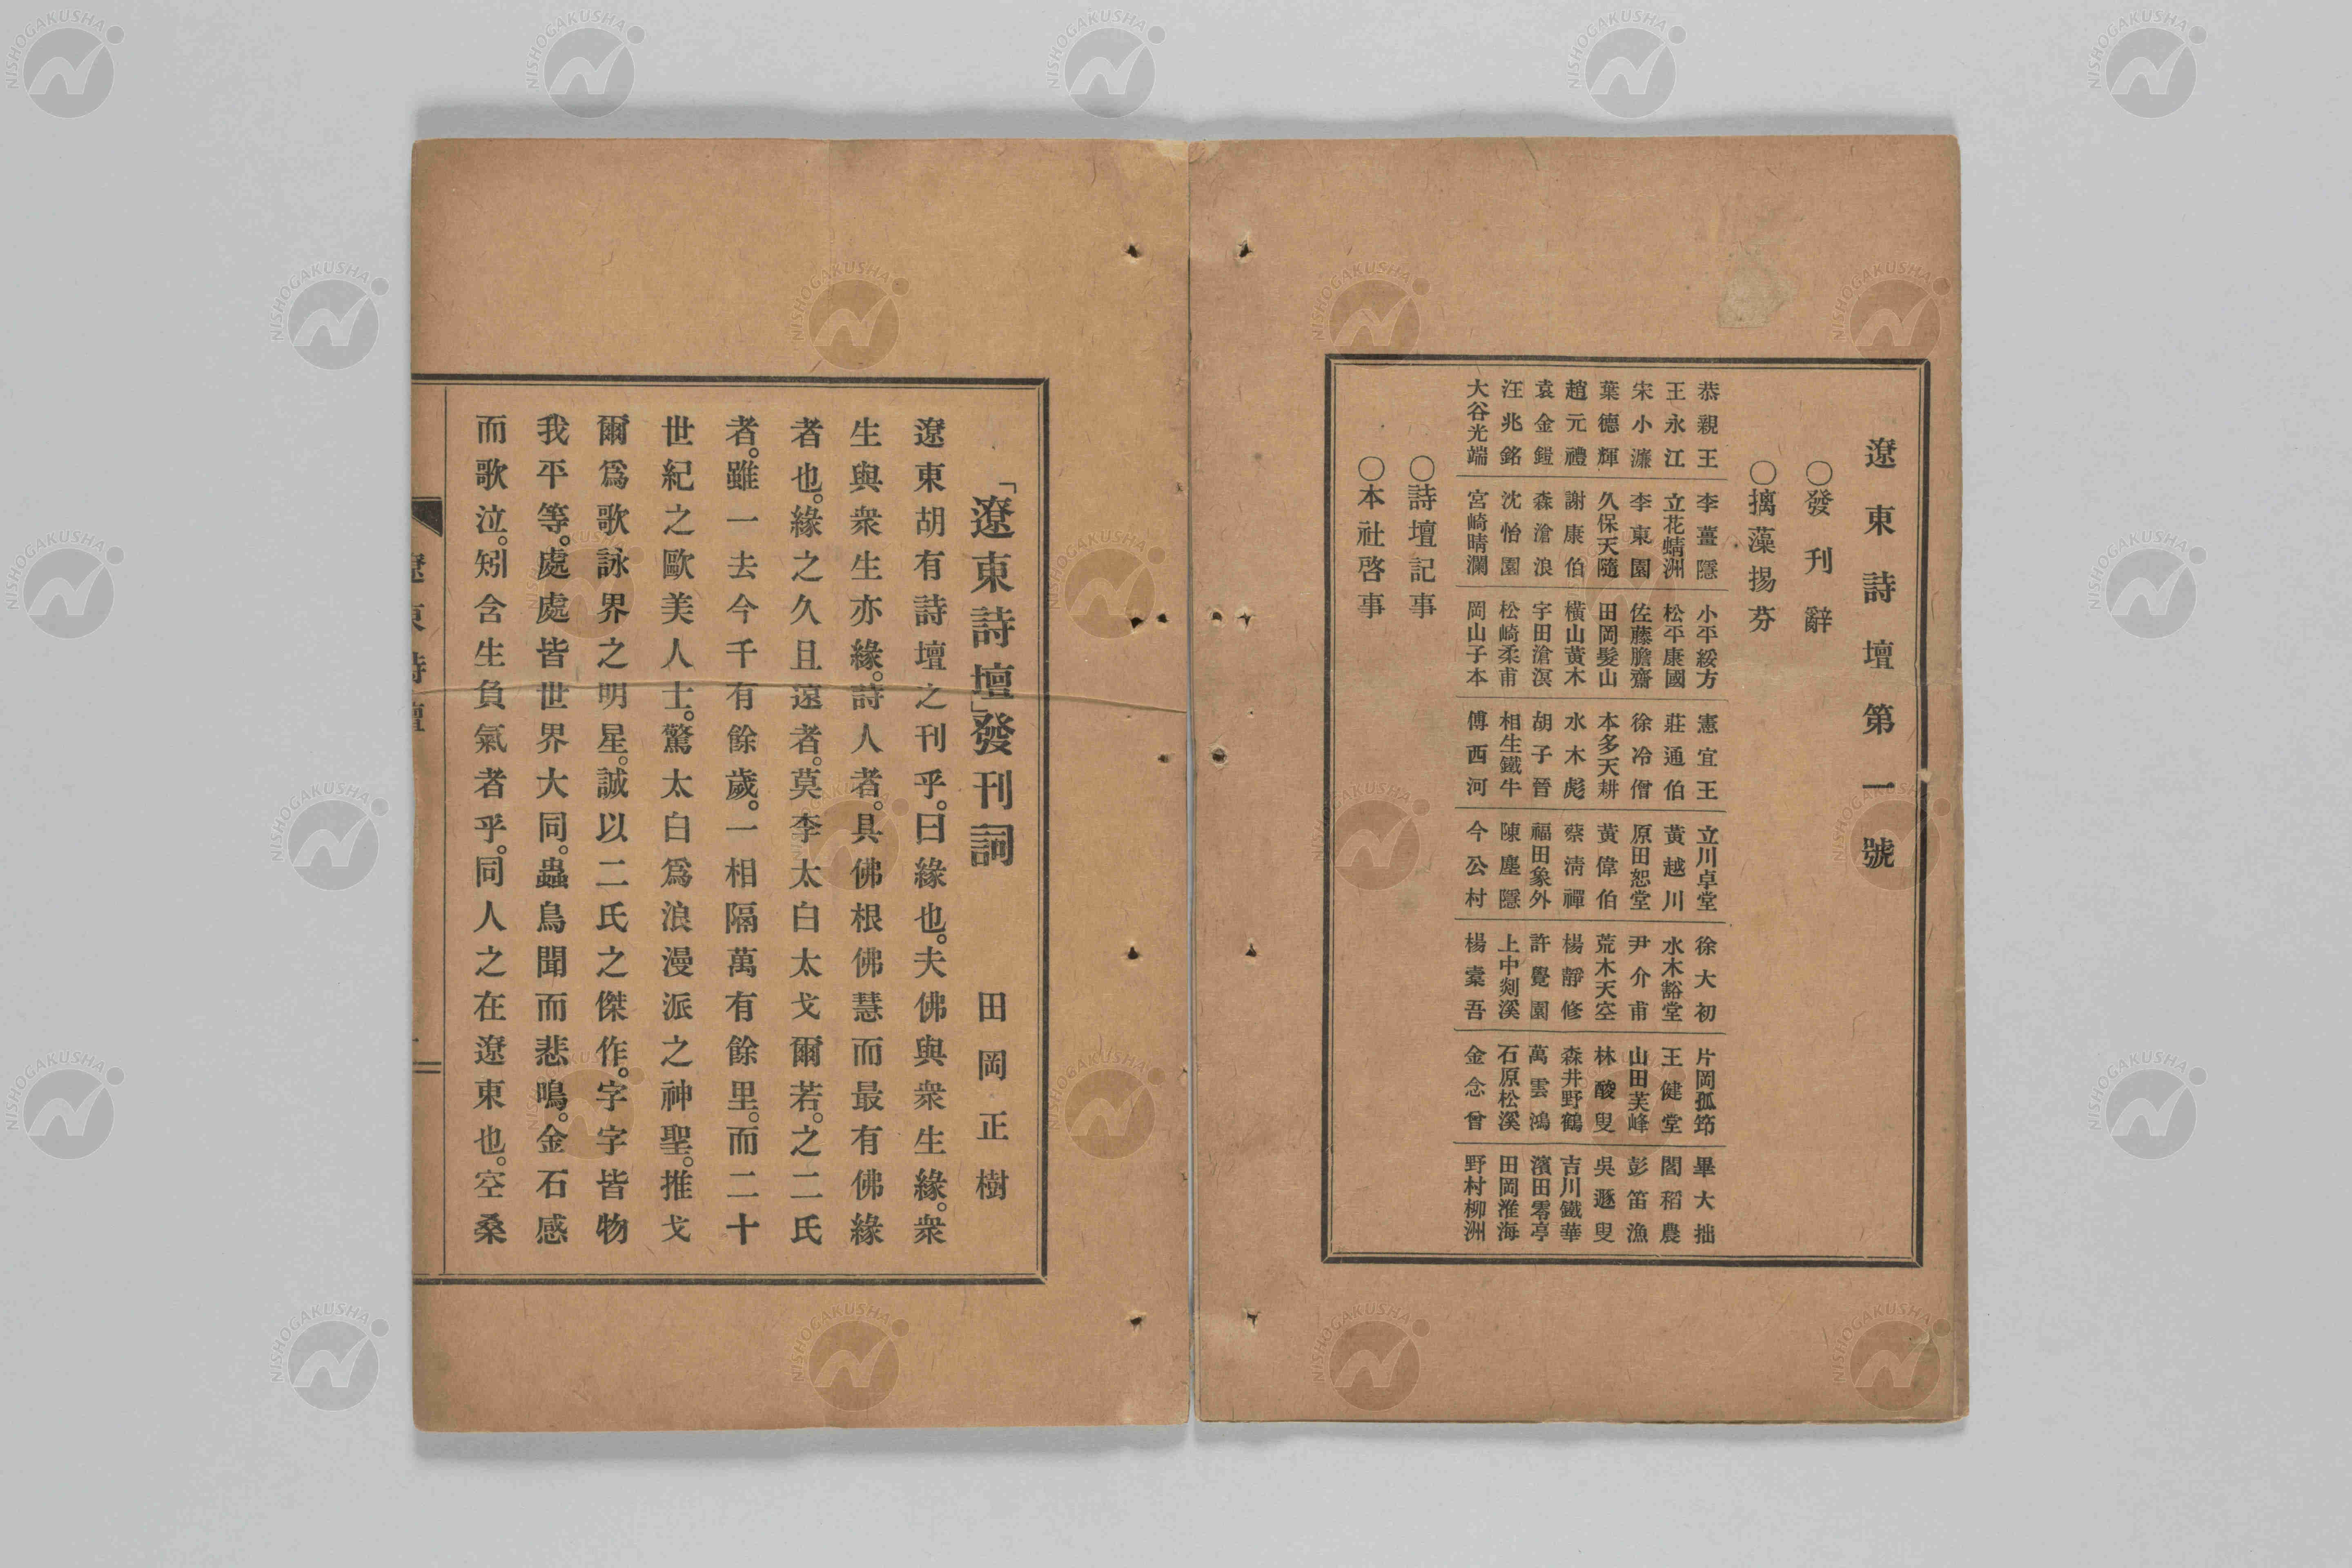 遼東詩壇第一號
○發刊辭
○摛藻揚芬
恭親王
王永江
宋小濂
葉德輝
趙元禮
袁金鎧
汪兆銘
大谷光端
李薑隱
立花蜻洲
李東園
久保天隨
謝康伯
森滄浪
沈怡園
宮崎晴瀾
小平綏方
松平康國
佐藤膽齋
田岡髮山
橫山黃木
宇田滄溟
松崎柔甫
岡山子本
憲宜王
莊通伯
徐冷僧
本多天耕
水木彪
胡子晉
相生鐵牛
傅西河
立川卓堂
黃越川
原田恕堂
黃偉伯
蔡清禪
福田象外
陳塵隱
今公村
徐大初
水木豁堂
尹介甫
荒木天空
楊靜修
許覺園
上中剡溪
楊橐吾
片岡孤筇
王健堂
山田芙峰
林酸叟
森井野鶴
萬雲鴻
石原松溪
金念曾
畢大拙
閻稻農
彭笛漁
吳遯叟
吉川鐵華
濱田零亭
田岡淮海
野村柳洲
○詩壇記事
○本社啓事
「遼東詩壇」發刊詞　田岡正樹
遼東胡有詩壇之刊乎。曰緣也。夫佛與衆生緣。衆
生與衆生亦緣。詩人者。具佛根佛慧而最有佛緣
者也。緣之久且遠者。莫李太白太戈爾若。之二氏
者。雖一去今千有餘歲。一相隔萬有餘里。而二十
世紀之歐美人士。驚太白爲浪漫派之神聖。推戈
爾爲歌詠界之明星。誠以二氏之傑作。字字皆物
我平等。處處皆世界大同。蟲鳥聞而悲鳴。金石感
而歌泣。矧含生負氣者乎。同人之在遼東也。空桑
遼東詩壇
NISHOGAKUSHA